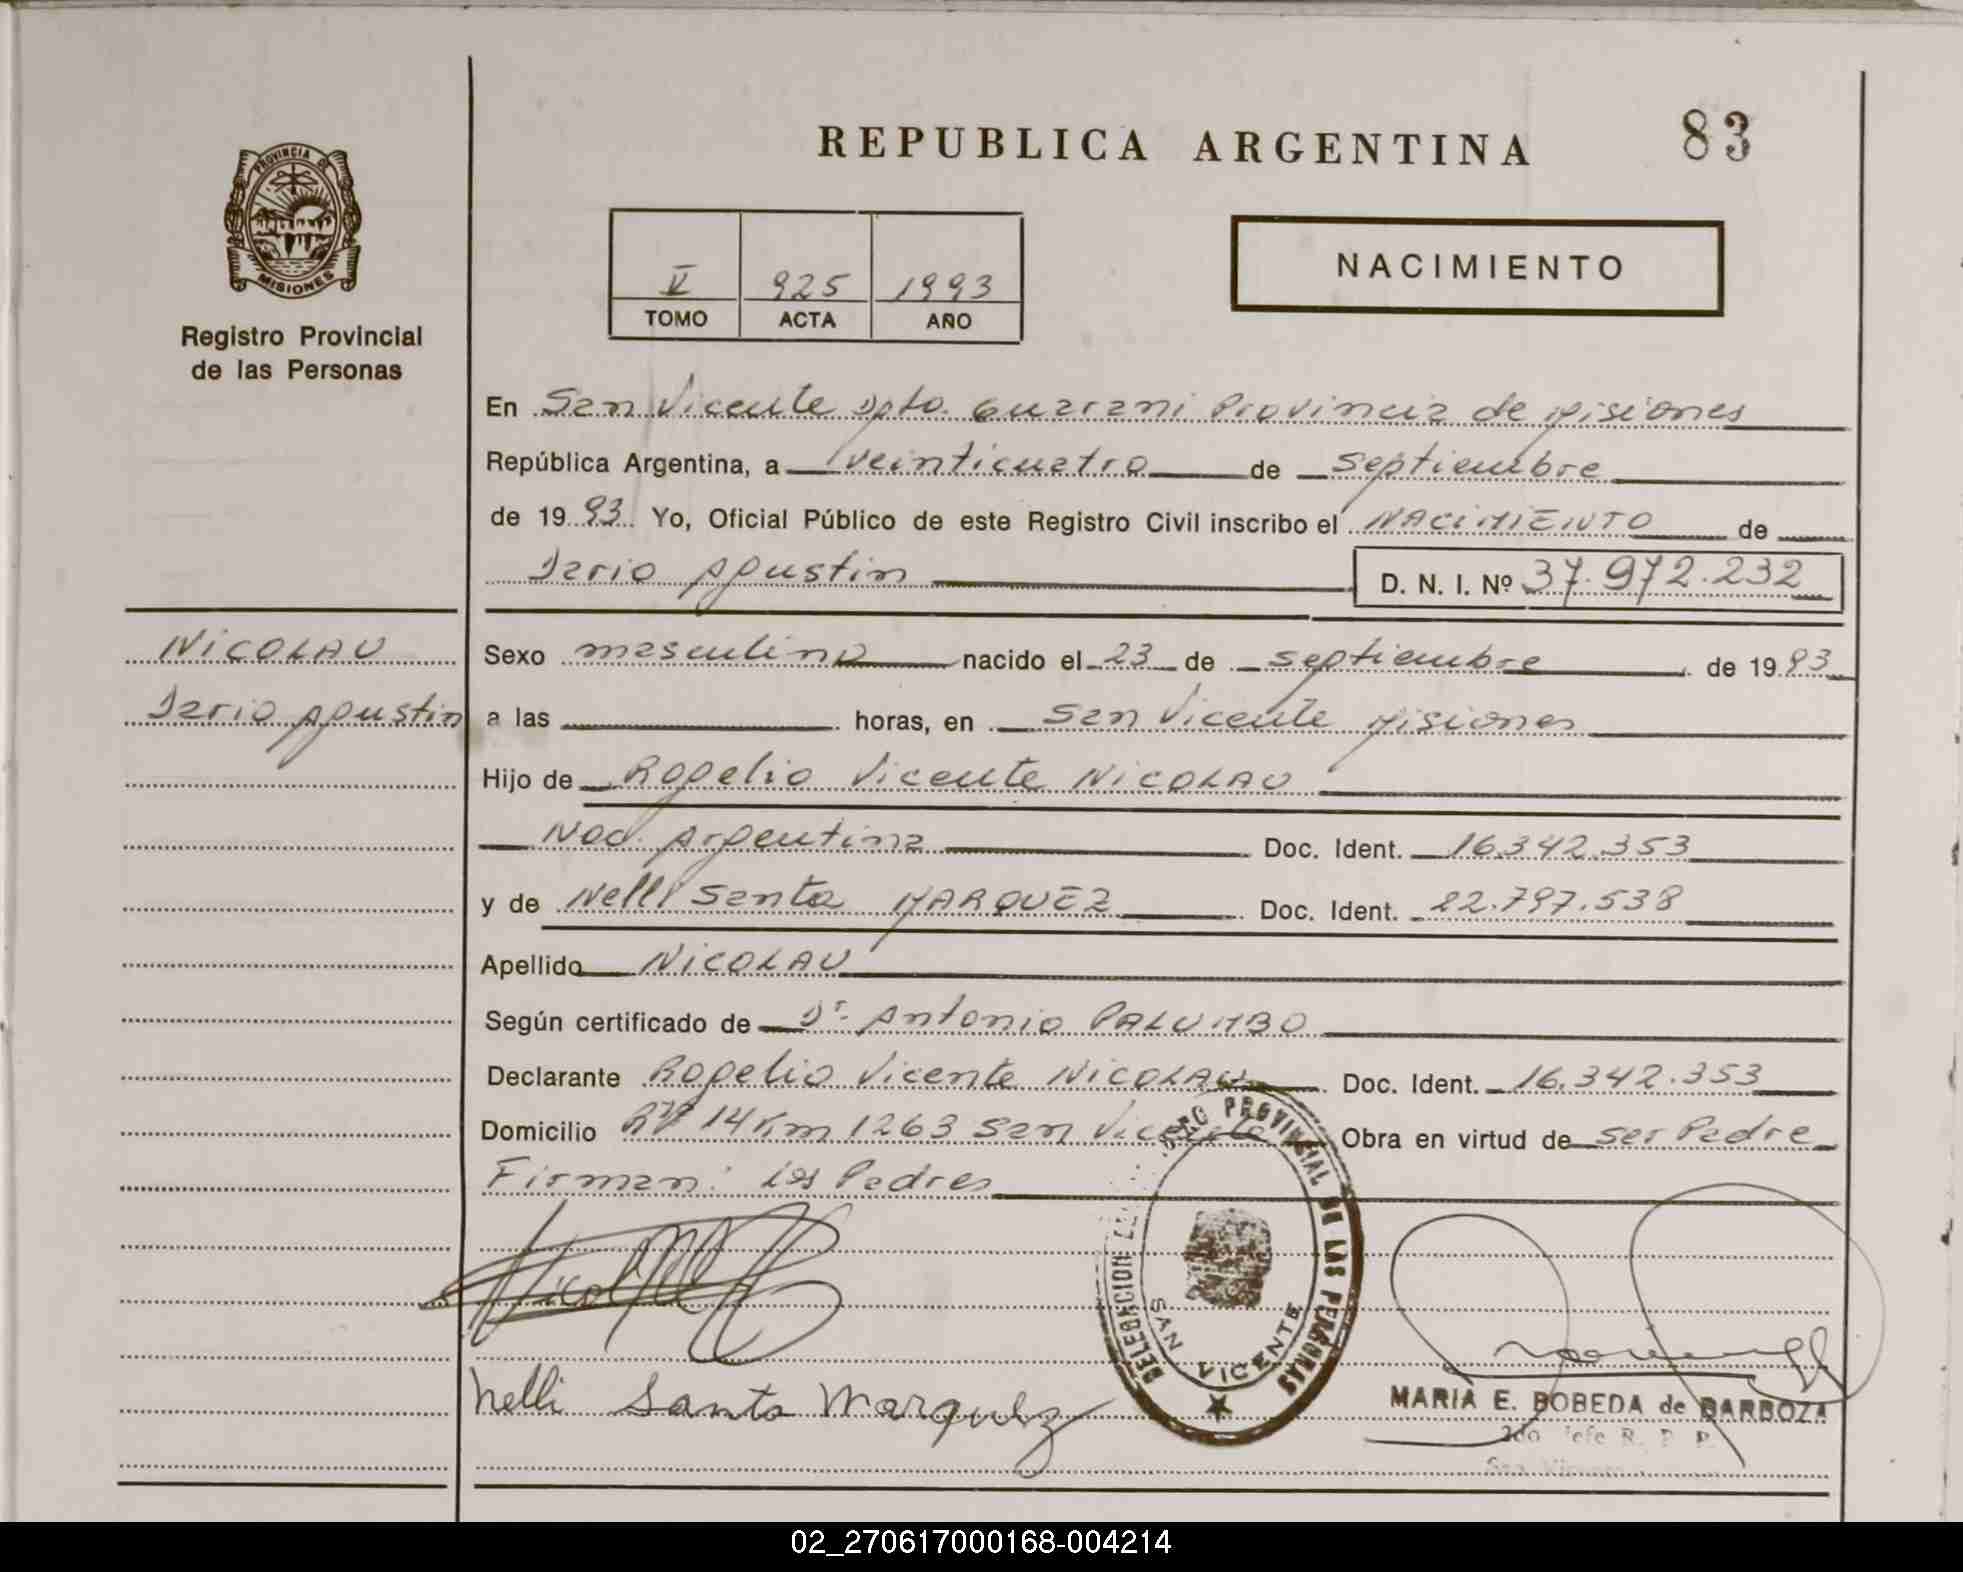 REPUBLICA ARGENTINA
83
PROVINCIA DE
MISIONES
Registro Provincial
de las Personas
V 925 1993
TOMO ACTA AÑO
NACIMIENTO
En San Vicente Dpto. Guarani Provincia de Misiones
República Argentina, a veinticuatro de septiembre
de 1993. Yo, Oficial Público de este Registro Civil inscribo el NACIMIENTO de
Dario Agustin D. N. I. Nº 37.972.232
NICOLAU
Dario Agustin
Sexo masculino nacido el 23 de septiembre de 1993
a las horas, en San Vicente Misiones
Hijo de Rogelio Vicente NICOLAU
Nac. Argentina Doc. Ident. 16.342.353
y de Nelli Santa MARQUEZ Doc. Ident. 22.797.538
Apellido NICOLAU
Según certificado de Dr. Antonio PALUMBO
Declarante Rogelio Vicente NICOLAU Doc. Ident. 16.342.353
Domicilio 14 Km 1263 San Vicente Obra en virtud de ser Padre
Firman: los Padres
DELEGACION PROVINCIAL DE LAS PERSONAS
SAN VICENTE
Nelli Santa Marquez
MARIA E. BOBEDA de BARBOZA
2do Jefe R. P. P.
02_270617000168-004214